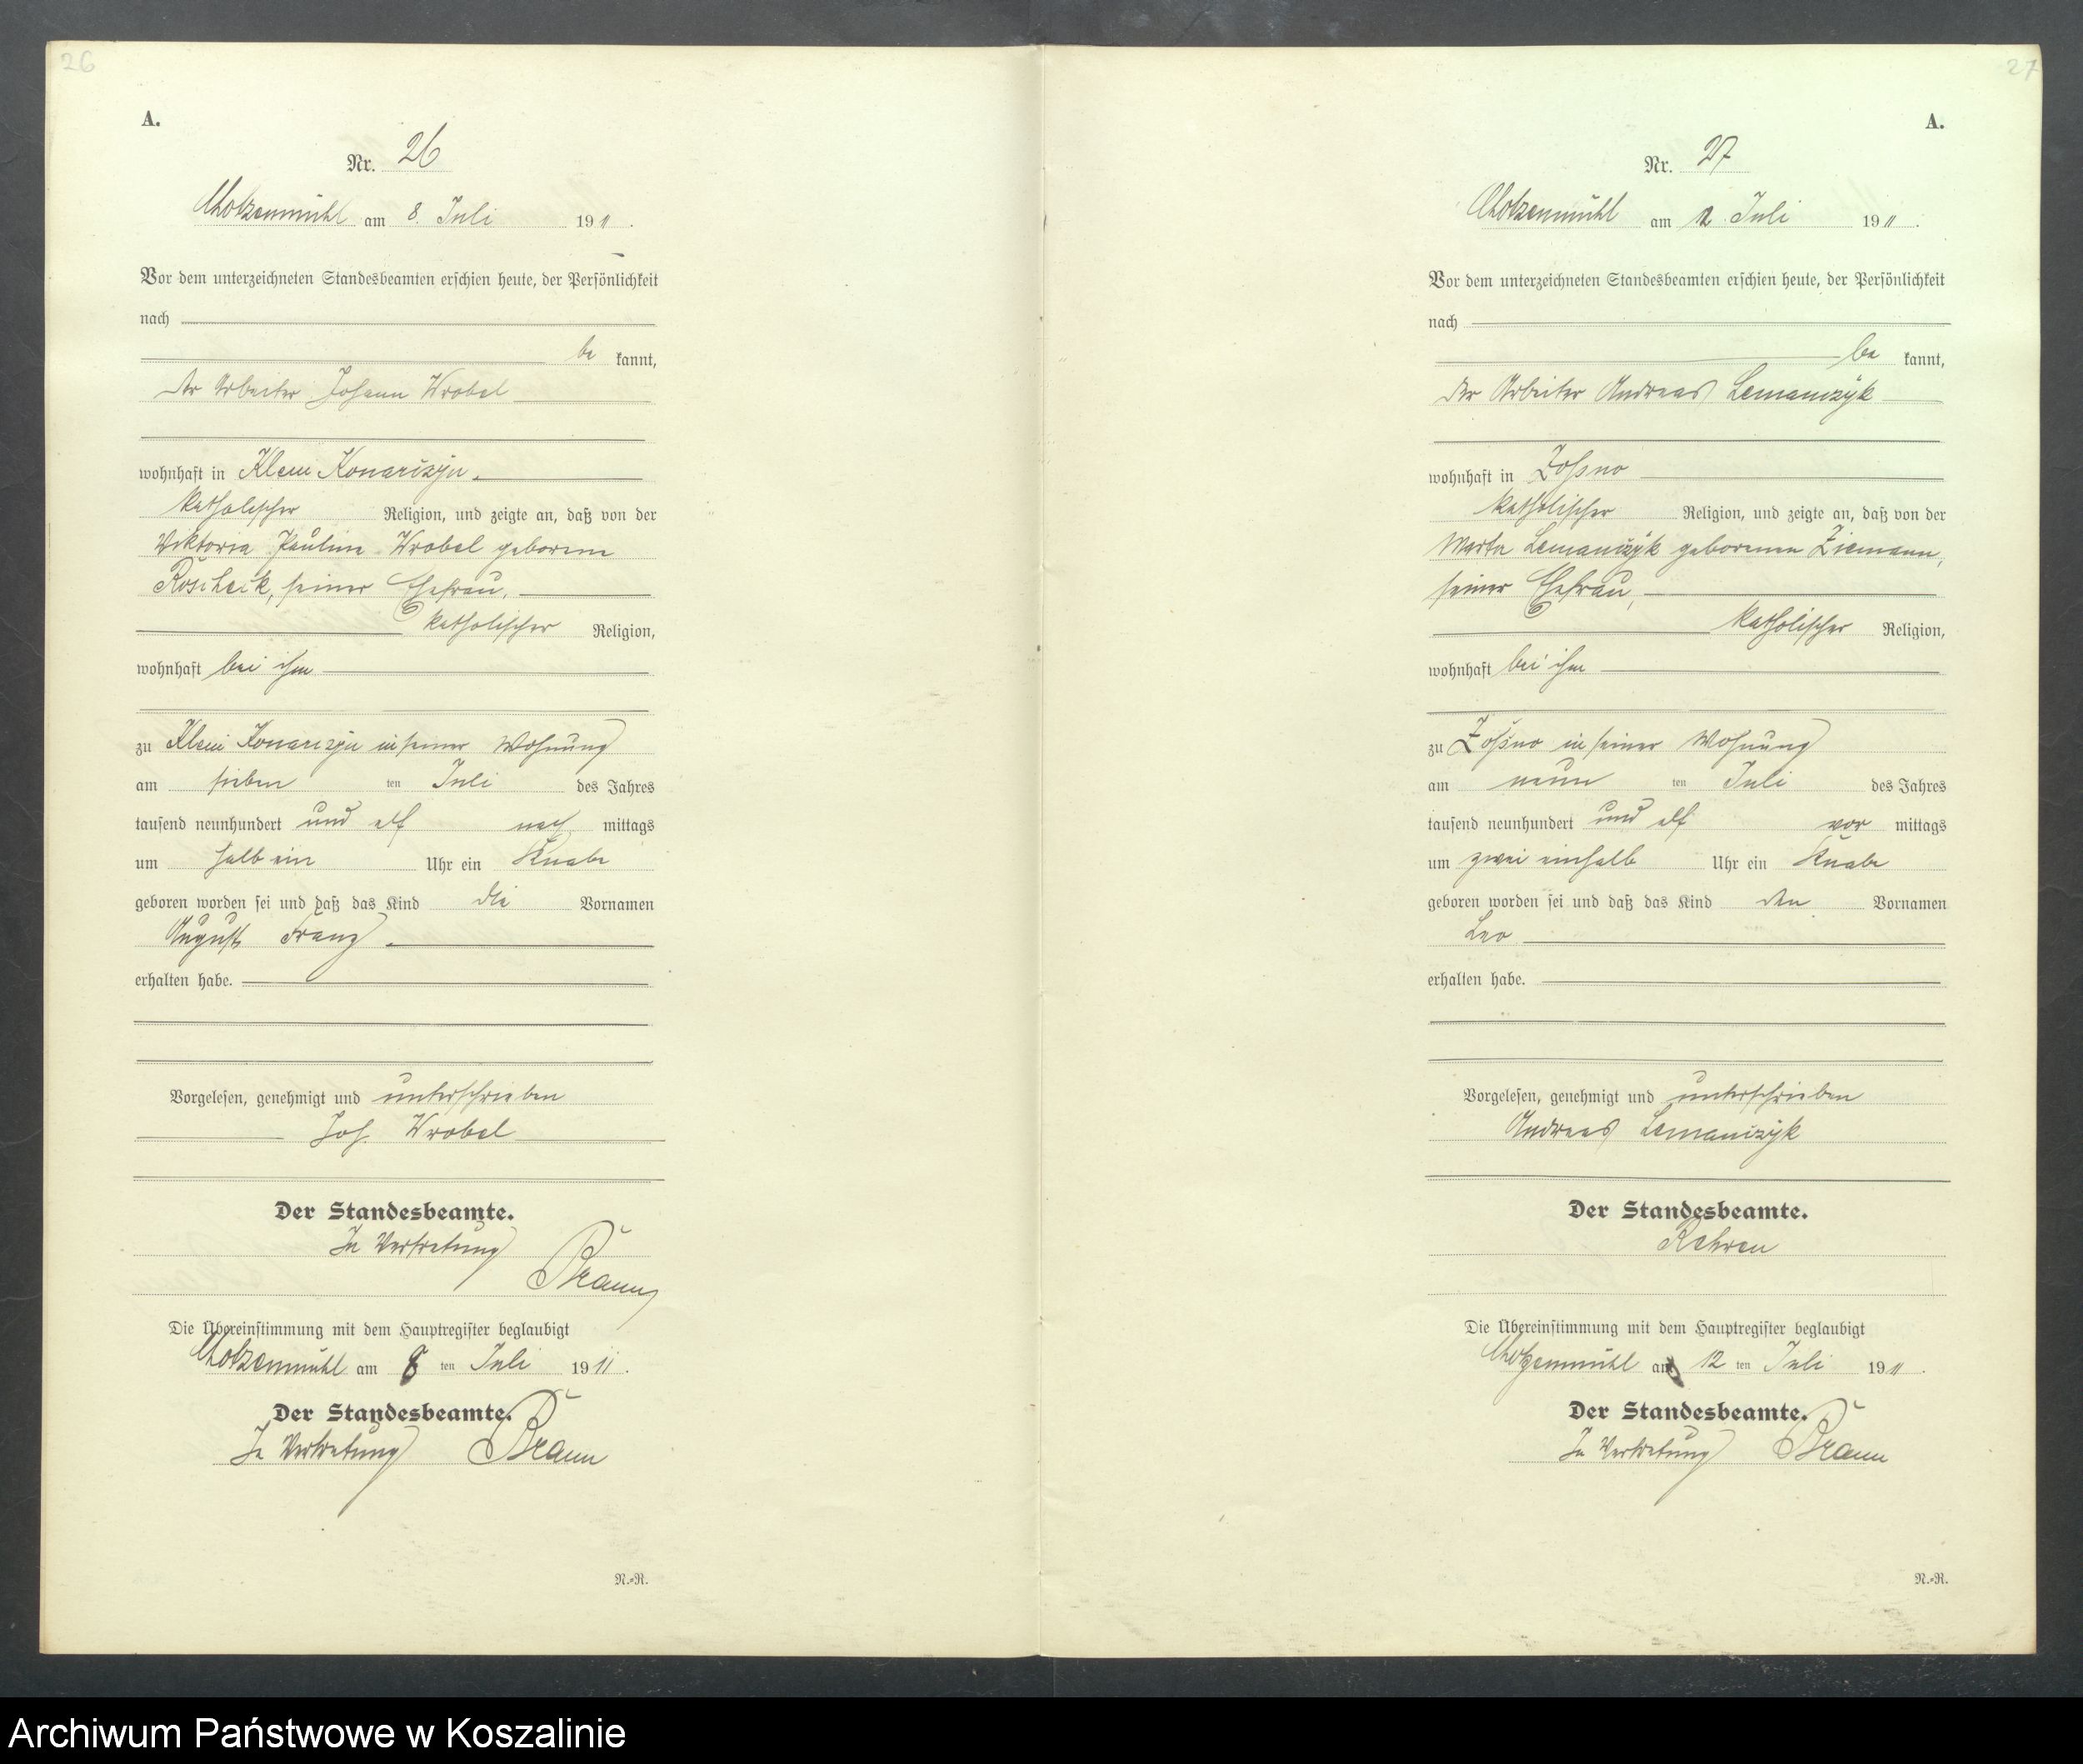 26
A.
Nr. 26
Chotzenmühl am 8. Juli 1911.
Vor dem unterzeichneten Standesbeamten erschien heute, der Persönlichkeit
nach
be kannt,
der Arbeiter Johann Wrobel
wohnhaft in Klein Konarczyn
katholischer Religion, und zeigte an, daß von der
Viktoria Pauline Wrobel geborene
seiner Ehefrau,
katholischer Religion,
wohnhaft bei ihm
zu Klein Konarczyn in seiner Wohnung
am sieben ten Juli des Jahres
tausend neunhundert und elf nach mittags
um halb ein Uhr ein Knabe
geboren worden sei und daß das Kind die Vornamen
August Franz
erhalten habe.
Vorgelesen, genehmigt und unterschrieben
Joh. Wrobel
Der Standesbeamte.
In Vertretung
Braun
Die Übereinstimmung mit dem Hauptregister beglaubigt
Chotzenmühl am 8 ten Juli 1911.
Der Standesbeamte.
In Vertretung Braun
N.=R.
27
A.
Nr. 27
Chotzenmühl am 12. Juli 1911.
Vor dem unterzeichneten Standesbeamten erschien heute, der Persönlichkeit
nach
be kannt,
der Arbeiter Andreas Lemanczyk
wohnhaft in Zoßno
katholischer Religion, und zeigte an, daß von der
Marta Lemanczyk geborenen Ziemann,
seiner Ehefrau,
katholischer Religion,
wohnhaft bei ihm
zu Zoßno in seiner Wohnung
am neun ten Juli des Jahres
tausend neunhundert und elf vor mittags
um zwei einhalb Uhr ein Knabe
geboren worden sei und daß das Kind den Vornamen
Leo
erhalten habe.
Vorgelesen, genehmigt und unterschrieben
Andreas Lemanczyk
Der Standesbeamte.
Rehren
Die Übereinstimmung mit dem Hauptregister beglaubigt
Chotzenmühl am 12 ten Juli 1911.
Der Standesbeamte.
In Vertretung Braun
N.=R.
Archiwum Państwowe w Koszalinie